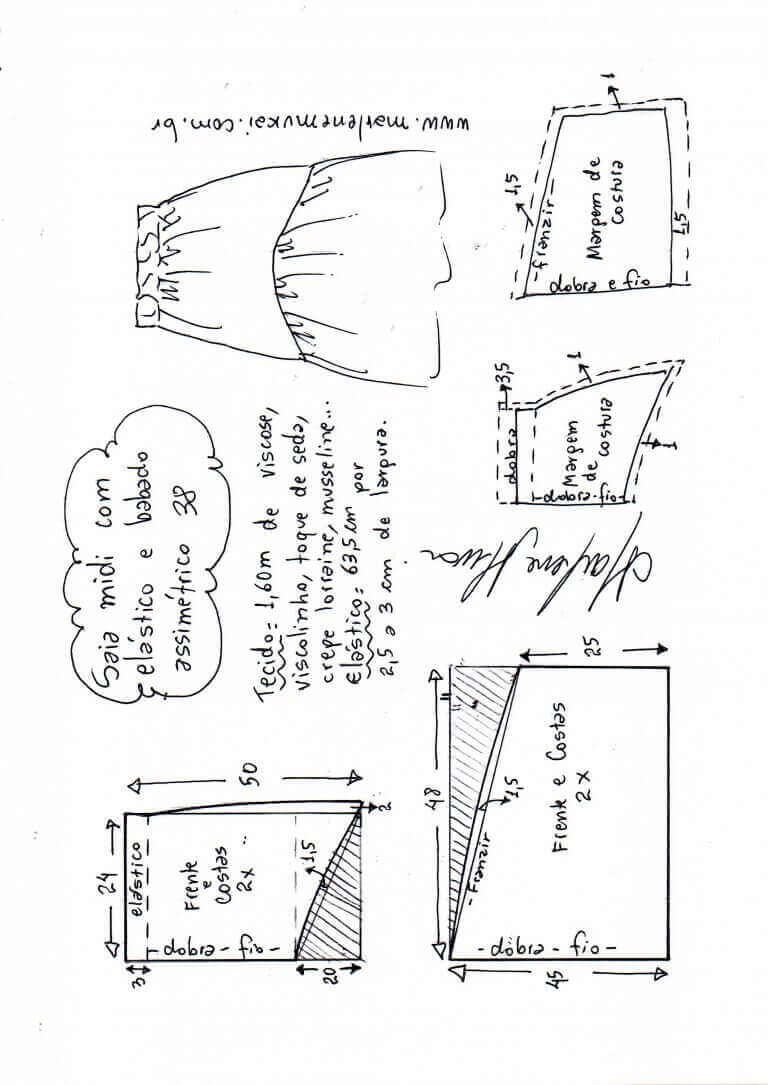 Saia midi com
elástico e babado
assimétrico 38
Tecido= 1,60m de viscose,
viscolinho, toque de seda,
crepe lorraine, musseline...
Elástico= 63,5cm por
2,5 a 3 cm de largura.
www.marlenemukai.com.br
24
3
elástico
50
Frente
e
Costas
2x
dobra - fio
1,5
20
2
48
45
25
Franzir
1,5
Frente e Costas
2x
dobra - fio
dobra
3,5
Margem
de costura
dobra-fio
1
1
1,5
franzir
Margem de
costura
dobra e fio
1,5
1